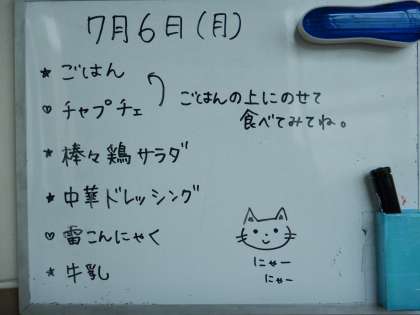 7月6日(月)
★ごはん
♡チャプチェ
ごはんの上にのせて
食べてみてね。
★棒々鶏サラダ
★中華ドレッシング
♡雷こんにゃく
★牛乳
にゃー
にゃー